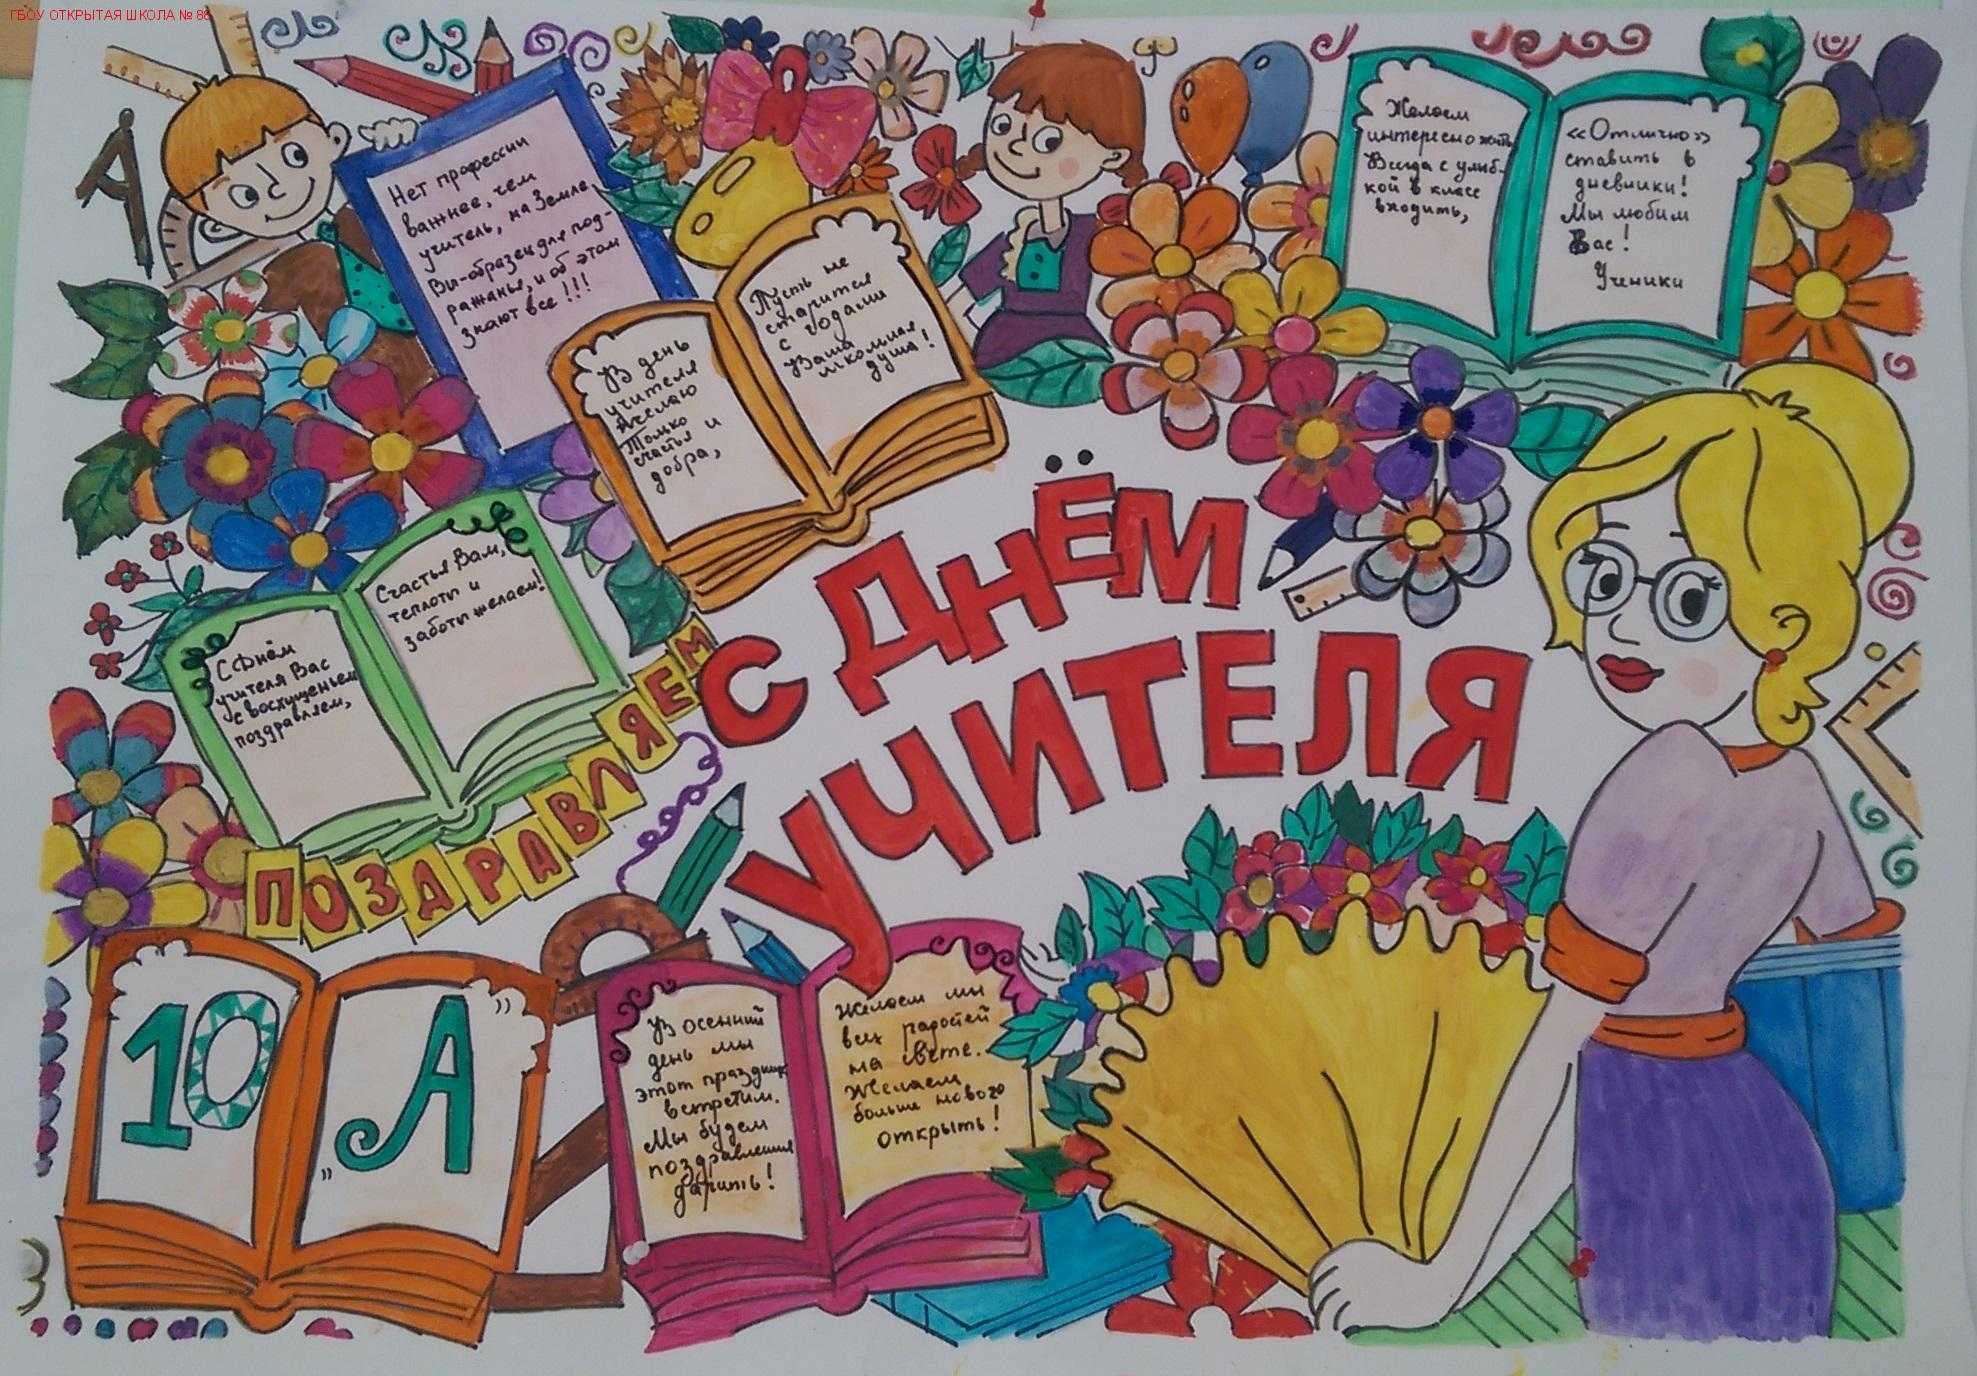 ГБОУ ОТКРЫТАЯ ШКОЛА № 86
Нет профессии
важнее, чем
учитель, на Земле
Вы-образец для под-
ражанья, и об этом
знают все!!!
В день
учителя
желаю
Только
счастья и
добра,
Пусть не
старится
с годами
Ваша
школьная
душа!
Желаем
интересно жить
Всегда с улыб-
кой в класс
входить,
«Отлично»
ставить в
дневники!
Мы любим
Вас!
Ученики
С Днём
учителя Вас
с восхищеньем
поздравляем,
Счастья Вам,
теплоты и
заботы желаем!
ПОЗДРАВЛЯЕМ
С ДНЁМ
УЧИТЕЛЯ
10
„А”
В осенний
день мы
этот праздник
встретим.
Мы будем
поздравления
дарить!
Желаем мы
всех радостей
на свете.
Желаем
больше нового
открыть!